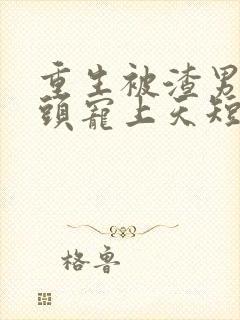 重生被渣男
頭寵上天短
格魯